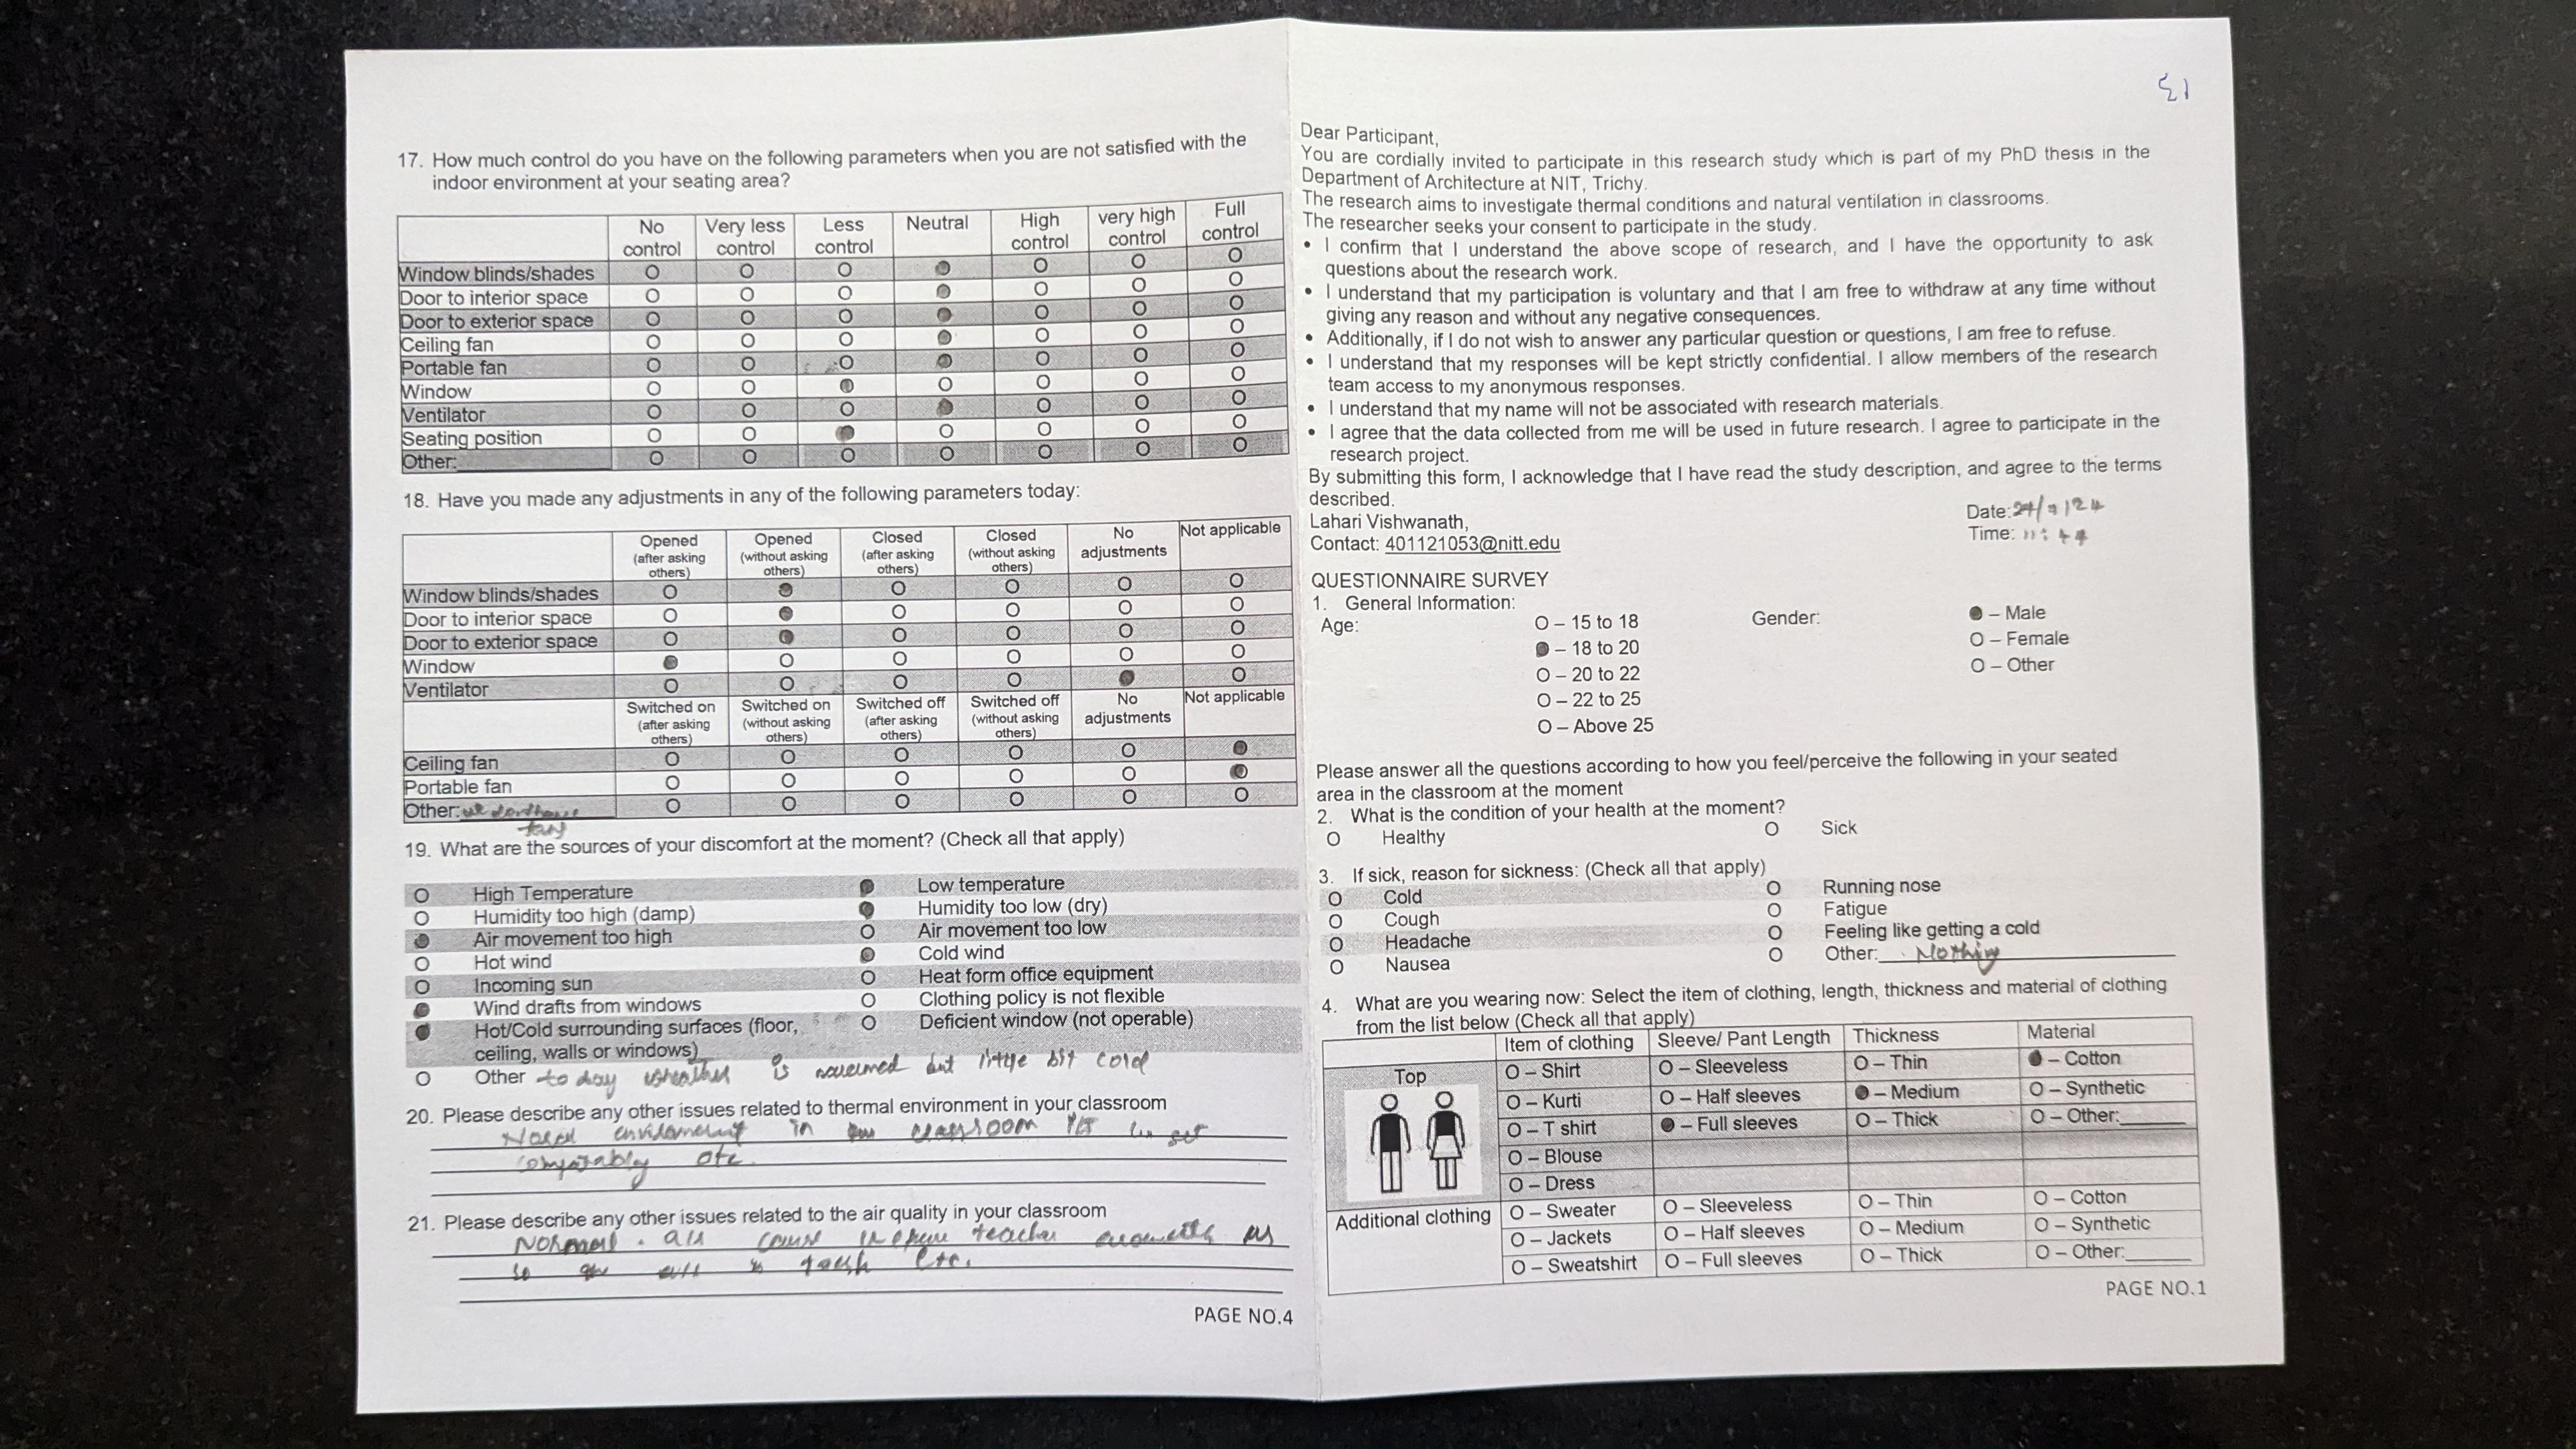 17. How much control do you have on the following parameters when you are not satisfied with the
indoor environment at your seating area?
No control Very less control Less control Neutral High control very high control Full control
Window blinds/shades O O O ● O O O
Door to interior space O O O ● O O O
Door to exterior space O O O ● O O O
Ceiling fan O O O ● O O O
Portable fan O O O ● O O O
Window O O ● O O O O
Ventilator O O O ● O O O
Seating position O O ● O O O O
Other: O O O O O O O
18. Have you made any adjustments in any of the following parameters today:
Opened (after asking others) Opened (without asking others) Closed (after asking others) Closed (without asking others) No adjustments Not applicable
Window blinds/shades O ● O O O O
Door to interior space O ● O O O O
Door to exterior space O ● O O O O
Window ● O O O O O
Ventilator O O O O ● O
Switched on (after asking others) Switched on (without asking others) Switched off (after asking others) Switched off (without asking others) No adjustments Not applicable
Ceiling fan O O O O O ●
Portable fan O O O O O ●
Other: we O O O O O O
19. What are the sources of your discomfort at the moment? (Check all that apply)
O High Temperature ● Low temperature
O Humidity too high (damp) ● Humidity too low (dry)
● Air movement too high O Air movement too low
O Hot wind ● Cold wind
O Incoming sun O Heat form office equipment
● Wind drafts from windows O Clothing policy is not flexible
● Hot/Cold surrounding surfaces (floor, O Deficient window (not operable)
ceiling, walls or windows)
O Other to day is but little bit cold
20. Please describe any other issues related to thermal environment in your classroom
in classroom
etc.
21. Please describe any other issues related to the air quality in your classroom
Normal. teacher
so etc.
PAGE NO.4
13
Dear Participant,
You are cordially invited to participate in this research study which is part of my PhD thesis in the
Department of Architecture at NIT, Trichy.
The research aims to investigate thermal conditions and natural ventilation in classrooms.
The researcher seeks your consent to participate in the study.
• I confirm that I understand the above scope of research, and I have the opportunity to ask
questions about the research work.
• I understand that my participation is voluntary and that I am free to withdraw at any time without
giving any reason and without any negative consequences.
• Additionally, if I do not wish to answer any particular question or questions, I am free to refuse.
• I understand that my responses will be kept strictly confidential. I allow members of the research
team access to my anonymous responses.
• I understand that my name will not be associated with research materials.
• I agree that the data collected from me will be used in future research. I agree to participate in the
research project.
By submitting this form, I acknowledge that I have read the study description, and agree to the terms
described.
Lahari Vishwanath,
Contact: 401121053@nitt.edu
Date:
Time: 11:44
QUESTIONNAIRE SURVEY
1. General Information:
Age: O – 15 to 18 Gender: ● – Male
● – 18 to 20 O – Female
O – 20 to 22 O – Other
O – 22 to 25
O – Above 25
Please answer all the questions according to how you feel/perceive the following in your seated
area in the classroom at the moment
2. What is the condition of your health at the moment?
O Healthy O Sick
3. If sick, reason for sickness: (Check all that apply)
O Cold O Running nose
O Cough O Fatigue
O Headache O Feeling like getting a cold
O Nausea O Other: Nothing
4. What are you wearing now: Select the item of clothing, length, thickness and material of clothing
from the list below (Check all that apply)
Item of clothing Sleeve/ Pant Length Thickness Material
Top O – Shirt O – Sleeveless O – Thin ● – Cotton
O – Kurti O – Half sleeves ● – Medium O – Synthetic
O – T shirt ● – Full sleeves O – Thick O – Other:
O – Blouse
O – Dress
Additional clothing O – Sweater O – Sleeveless O – Thin O – Cotton
O – Jackets O – Half sleeves O – Medium O – Synthetic
O – Sweatshirt O – Full sleeves O – Thick O – Other:
PAGE NO.1